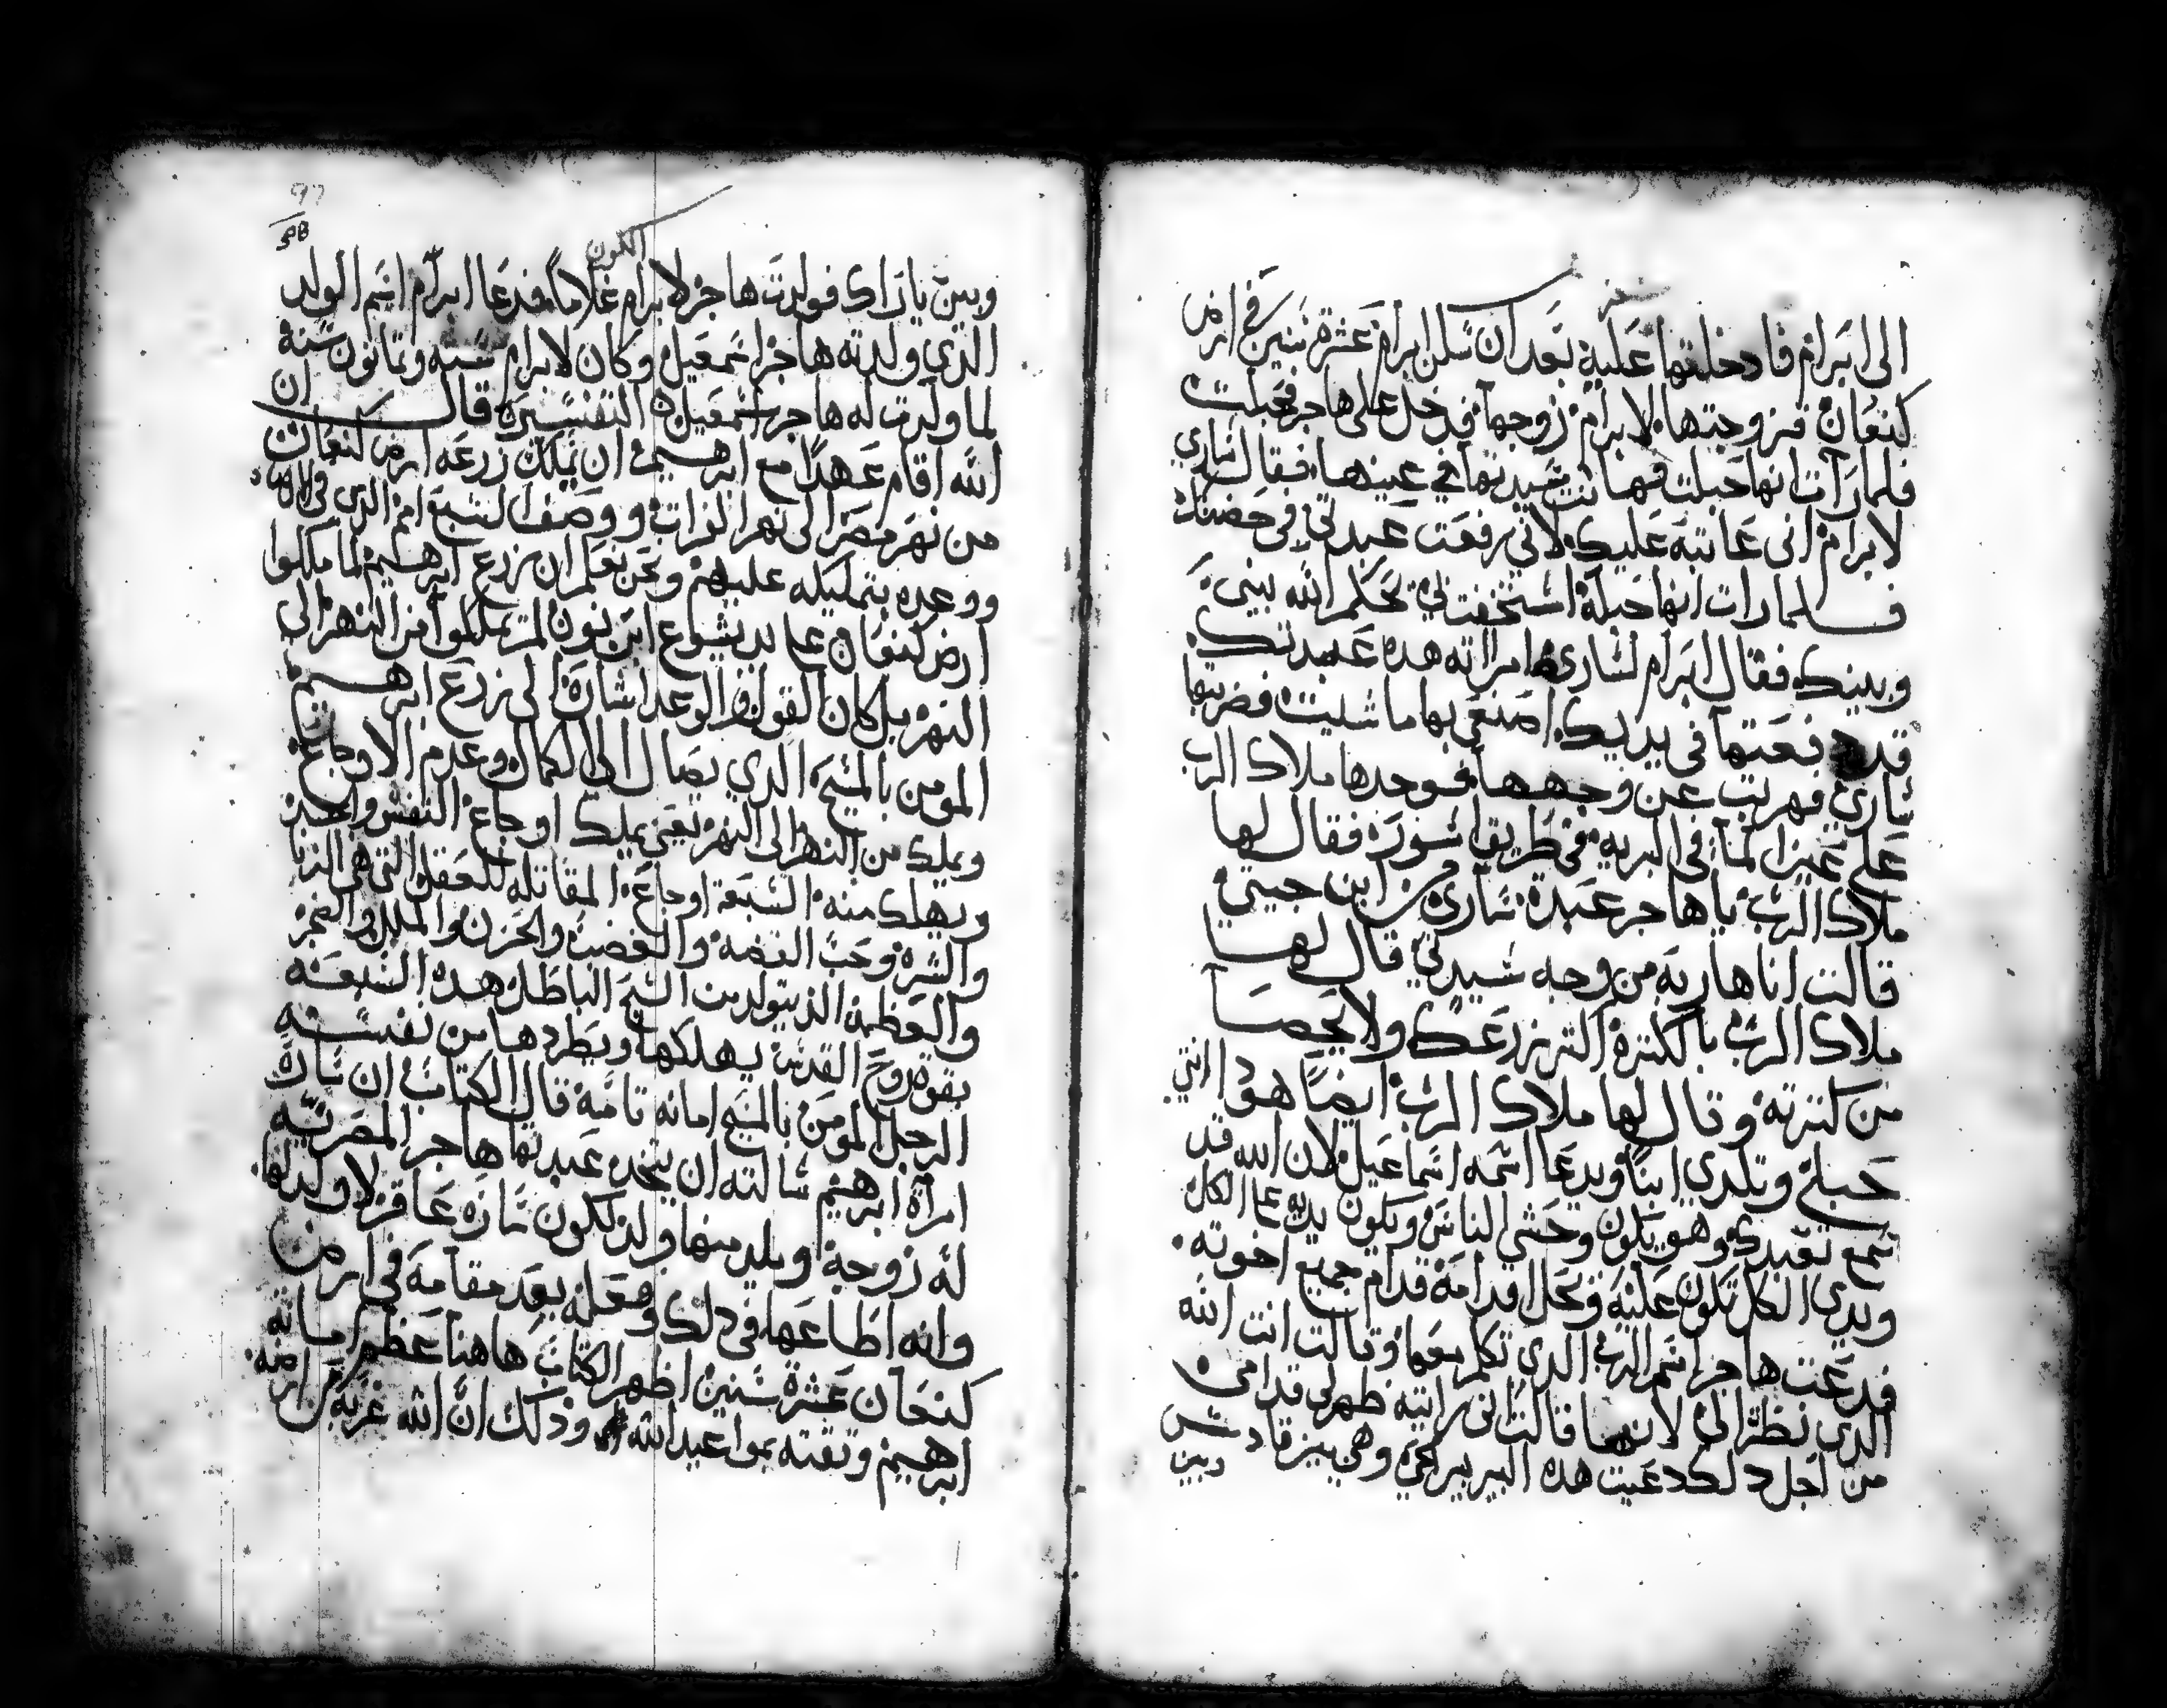 الى ابرام فادخلتها عليه بعد ان سكن ابرام عشرة سنين في ارض
كنعان فزوجتها لابرام زوجها فدخل على هاجر فحبلت
فلما رات انها حبلت فهانت سيدتها في عينها فقالت ساري
لابرام اني عاتبه عليك لاني رفعت عبدتي في حضنك
فلما رات انها حبلة استخفت بي يحكم الله بيني
وبينك فقال ابرام لساري امراته هده عبدتك
قد دفعتها في يديك اصنعي بها ما شيت فضربتها
ساري فهربت عن وجهها فوجدها ملاك الرب
على عين الما في البريه في طريق اسورة فقال لها
ملاك الرب يا هاجر عبدة ساري من اين جيتي
قالت انا هاربه من وجه سيدتي قال لها
ملاك الرب بالكترة اكتر زرعك ولا يحصا
من كترته وقال لها ملاك الرب ايضا هودا انتي
حبلى وتلدي ابنا ويدعا اسمه اسماعيل لان الله قد
سمع تعبدك وهو يكون وحشي الناس ويكون يديه عا الكل
ويدي الكل تكون عليه ويحل قدامه قدام جميع اخوته
فدعت هاجر اسم الرب الدي تكلم معها وقالت انت الله
الدي نظر الي لانها قالت اني رايته ظهر لي قدامي
من اجل دلك دعيت هده البير بير الحي وهي بين قادس
وبين
الكون
وبين باراك فولدت هاجر لابرام غلاما فدعا ابرام اسم الولد
الدي ولدته هاجر اسمعيل وكان لابرام سته وتمانون سنة
لما ولدت له هاجر اسمعيل التفسير قال ان
الله اقام عهدا مع ابرهيم ان يملك زرعه ارض كنعان
من نهر مصر الى نهر الفرات ووصف السبع امم الدي
ووعده بتمليكه عليهم ونحن نعلم ان زرع ابرهيم لما ملكوا
ارض كنعان على يد يشوع ابن نون لم يملكوا من النهر الى
النهر بل كان القول والوعد اشارة الى زرع ابرهيم
المومن بالمسيح الدي يصال الى الكمال وعدم الاوجاع
ويملك من النهر الى النهر يعني يملك اوجاع النفس والجسد
ويهلك منه السبعة اوجاع المقاتله للعقل التي هي الزنا
والشره وحب الفضه والغضب والحزن والملل والضجر
والعظمه الذي يتولد من السبح الباطل هده السبعه
بقوة روح القدس يهلكها ويطردها من نفسه
الرجل المومن بالمسيح امانه تامة قال الكتاب ان سارة
امراة ابرهيم سالته ان يتخد عبدتها هاجر المصريه
له زوجة ويلد منها ولد لكون سارة عاقر لا ولد لها
وانه اطاعها في دلك وفعله بعد مقامه في ارض
كنعان عشرة سنين اظهر الكتاب هاهنا عظم امانة
ابرهيم وتقته بمواعيد الله وذلك ان الله غربه من ارضه